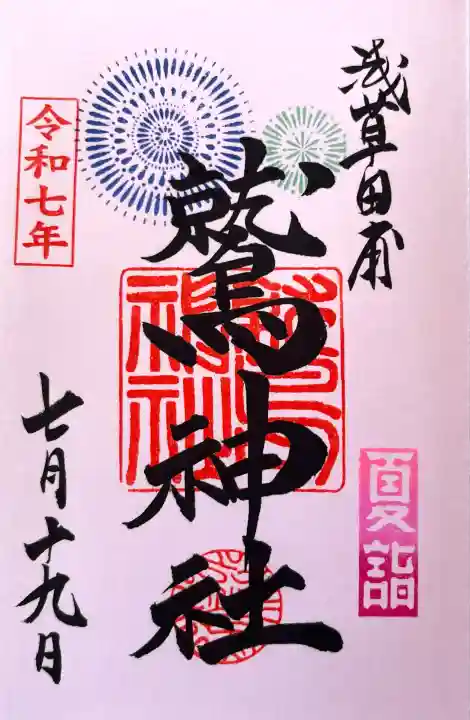 浅草田甫
夏詣
鷲神社
令和七年
七月十九日